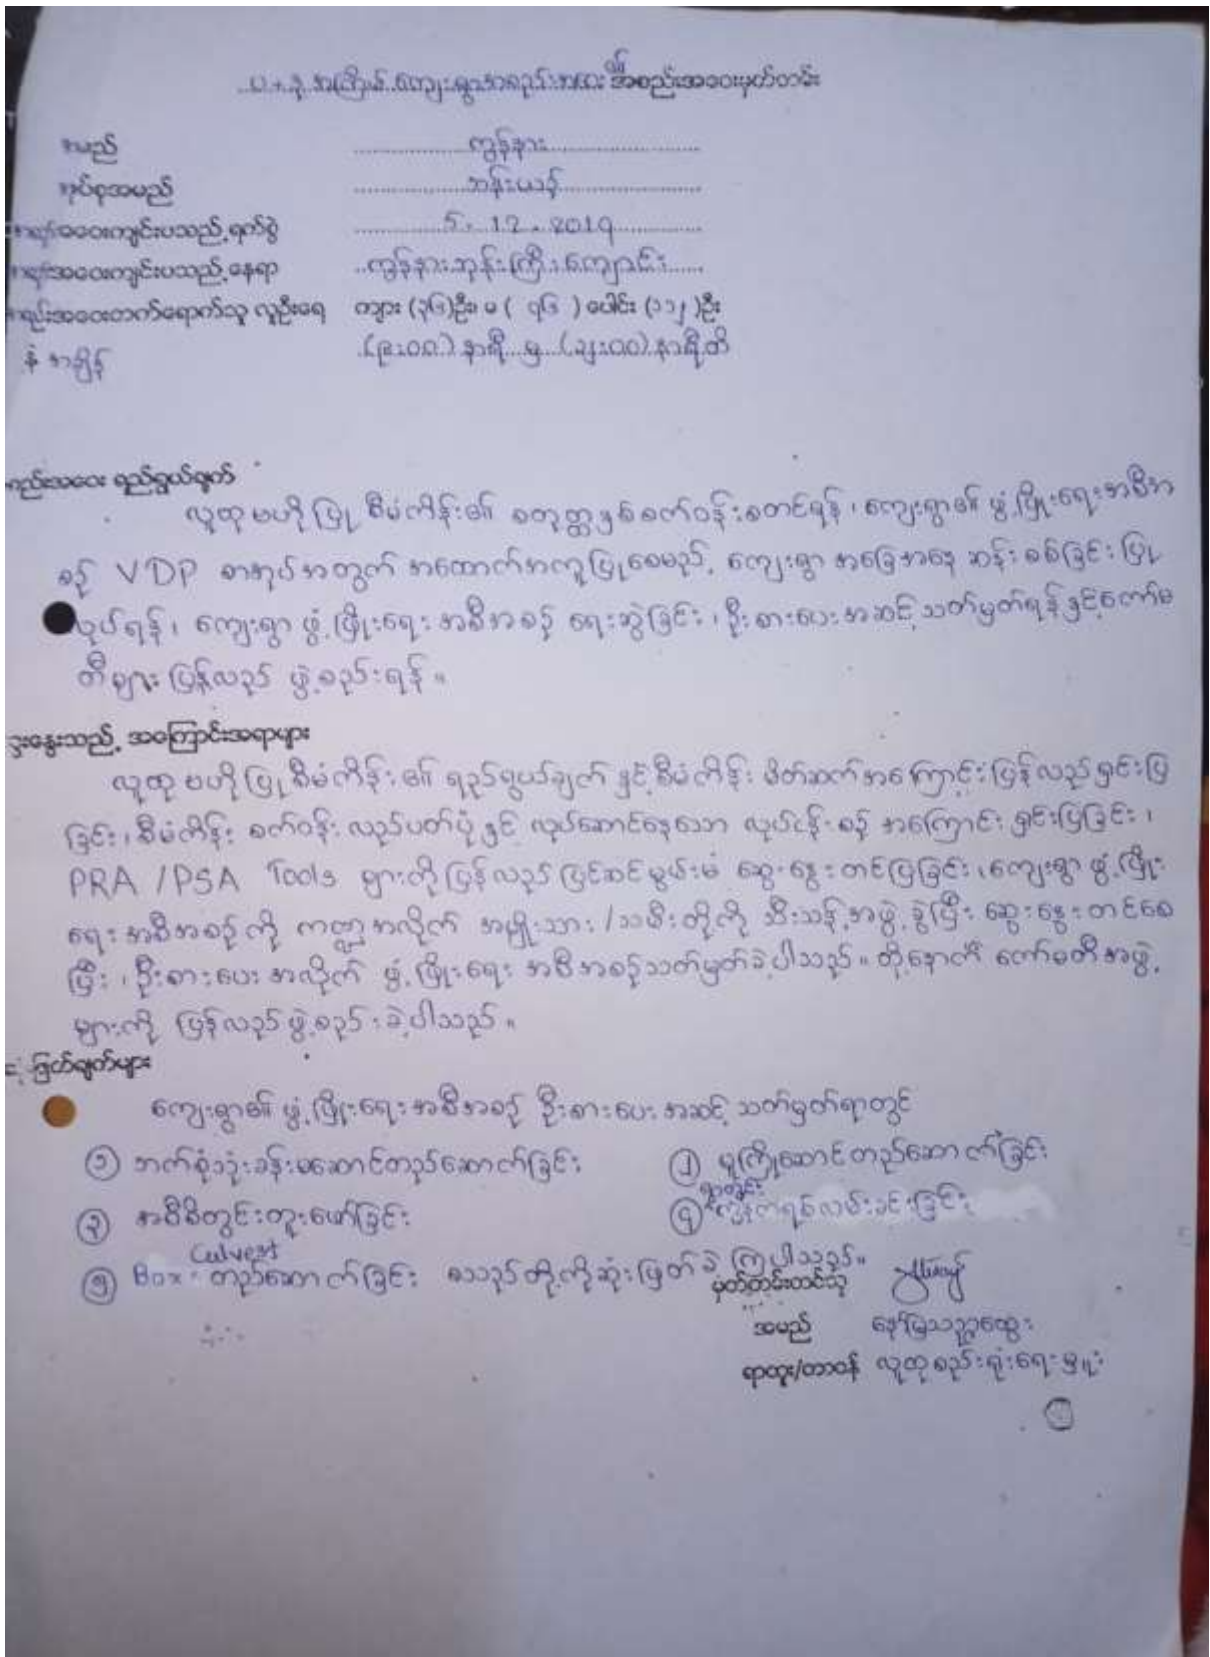 ပ + ဒု အကြိမ် ကျေးရွာအစည်းအဝေး ၏ အစည်းအဝေးမှတ်တမ်း
အမည် ကွန်နား
အုပ်စုအမည် ဘန်းယဉ်
အဝေးကျင်းပသည့် ရက်စွဲ 5. 12. 2019
အဝေးကျင်းပသည့် နေရာ ကွန်နားဘုန်းကြီးကျောင်း
အဝေးတက်ရောက်သူ လူဦးရေ ကျား (၃၆)ဦး မ ( ၇၆ ) ပေါင်း (၁၁၂ )ဦး
နဲ့ အချိန် (၉:၀၀) နာရီ မှ (၃:၀၀) နာရီထိ
အစည်းအဝေး ရည်ရွယ်ချက်
လူထုဗဟိုပြု စီမံကိန်း၏ စတုတ္ထနှစ်စက်ဝန်းစတင်ရန်၊ ကျေးရွာ၏ ဖွံ့ဖြိုးရေးအစီအ
စဉ် VDP စာအုပ်အတွက် အထောက်အကူပြုစေမည့် ကျေးရွာ အခြေအနေ ဆန်းစစ်ခြင်း ပြု
လုပ်ရန်၊ ကျေးရွာ ဖွံ့ဖြိုးရေး အစီအစဉ် ရေးဆွဲခြင်း၊ ဦးစားပေးအဆင့် သတ်မှတ်ရန်နှင့်ကော်မ
တီများ ပြန်လည် ဖွဲ့စည်းရန်။
ဆွေးနွေးသည့် အကြောင်းအရာများ
လူထုဗဟိုပြုစီမံကိန်း၏ ရည်ရွယ်ချက် နှင့်စီမံကိန်း မိတ်ဆက်အကြောင်းပြန်လည်ရှင်းပြ
ခြင်း၊ စီမံကိန်း စက်ဝန်း လည်ပတ်ပုံနှင့် လုပ်ဆောင်နေသော လုပ်ငန်းစဉ် အကြောင်း ရှင်းပြခြင်း၊
PRA /PSA Tools များကို ပြန်လည် ပြင်ဆင်မွမ်းမံ ဆွေးနွေးတင်ပြခြင်း၊ ကျေးရွာ ဖွံ့ဖြိုး
ရေး အစီအစဉ်ကို ကဏ္ဍအလိုက် အမျိုးသား /သမီးတို့ကို သီးသန့်အဖွဲ့ခွဲပြီး ဆွေးနွေးတင်စေ
ပြီး ၊ ဦးစားပေးအလိုက် ဖွံ့ဖြိုးရေး အစီအစဉ်သတ်မှတ်ခဲ့ပါသည်။ ထို့နောက် ကော်မတီအဖွဲ့
များကို ပြန်လည်ဖွဲ့စည်းခဲ့ပါသည်။
ဆုံးဖြတ်ချက်များ
ကျေးရွာ၏ ဖွံ့ဖြိုးရေးအစီအစဉ် ဦးစားပေးအဆင့် သတ်မှတ်ရာတွင်
၁ ဘက်စုံသုံးခန်းမဆောင်တည်ဆောက်ခြင်း ၂ မူကြိုဆောင်တည်ဆောက်ခြင်း
၃ အဝီစိတွင်းတူးဖော်ခြင်း ၄ ရွာတွင်း ကွန်ကရစ်လမ်းခင်းခြင်း
၅ Box Culvert တည်ဆောက်ခြင်း စသည်တို့ကိုဆုံးဖြတ်ခဲ့ကြပါသည်။
မှတ်တမ်းတင်သူ
အမည် နော်မြသဉ္ဇာထွေး
ရာထူး/တာဝန် လူထုစည်းရုံးရေးမှူး